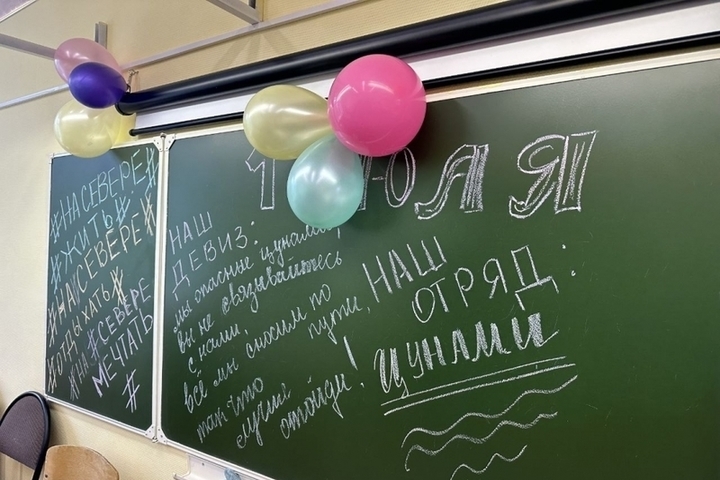 #НАСЕВЕРЕ#
#ЖИТЬ#
#НА#СЕВЕРЕ#
#ОТДЫХАТЬ#
#НА#СЕВЕРЕ
МЕЧТАТЬ
#
1 ЮЛЯ
НАШ
ДЕВИЗ:
мы опасные цунами,
вы не связывайтесь
с нами,
всё мы сносим по
пути,
так что
лучше
отойди!
НАШ
ОТРЯД:
ЦУНАМИ